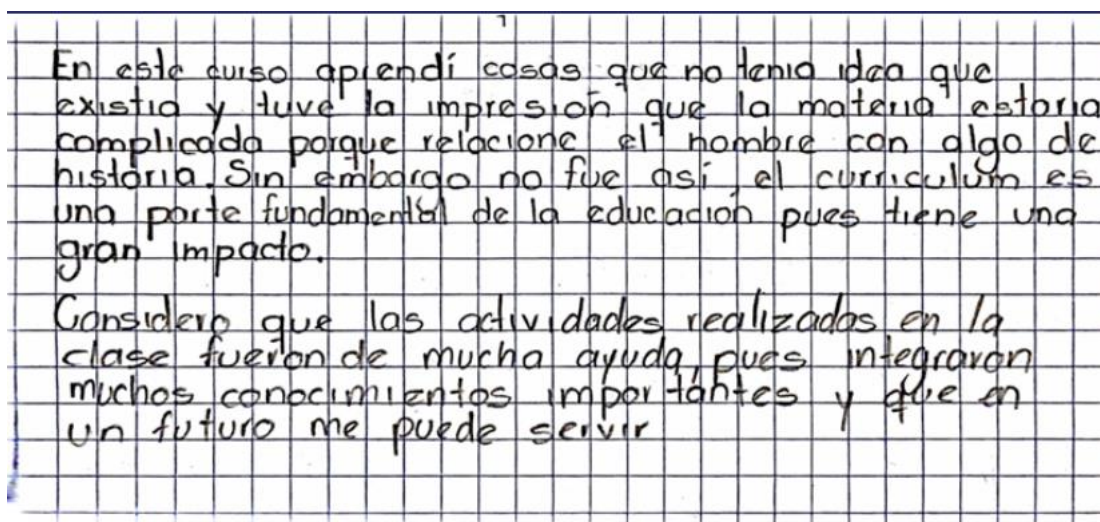 En este curso aprendí cosas que no tenia idea que
existia y tuve la impresión que la materia estaria
complicada porque relacione el nombre con algo de
historia. Sin embargo no fue así, el curriculum es
una parte fundamental de la educación pues tiene una
gran impacto.
Considero que las actividades realizadas en la
clase fueron de mucha ayuda, pues integraron
muchos conocimientos importantes y que en
un futuro me puede servir